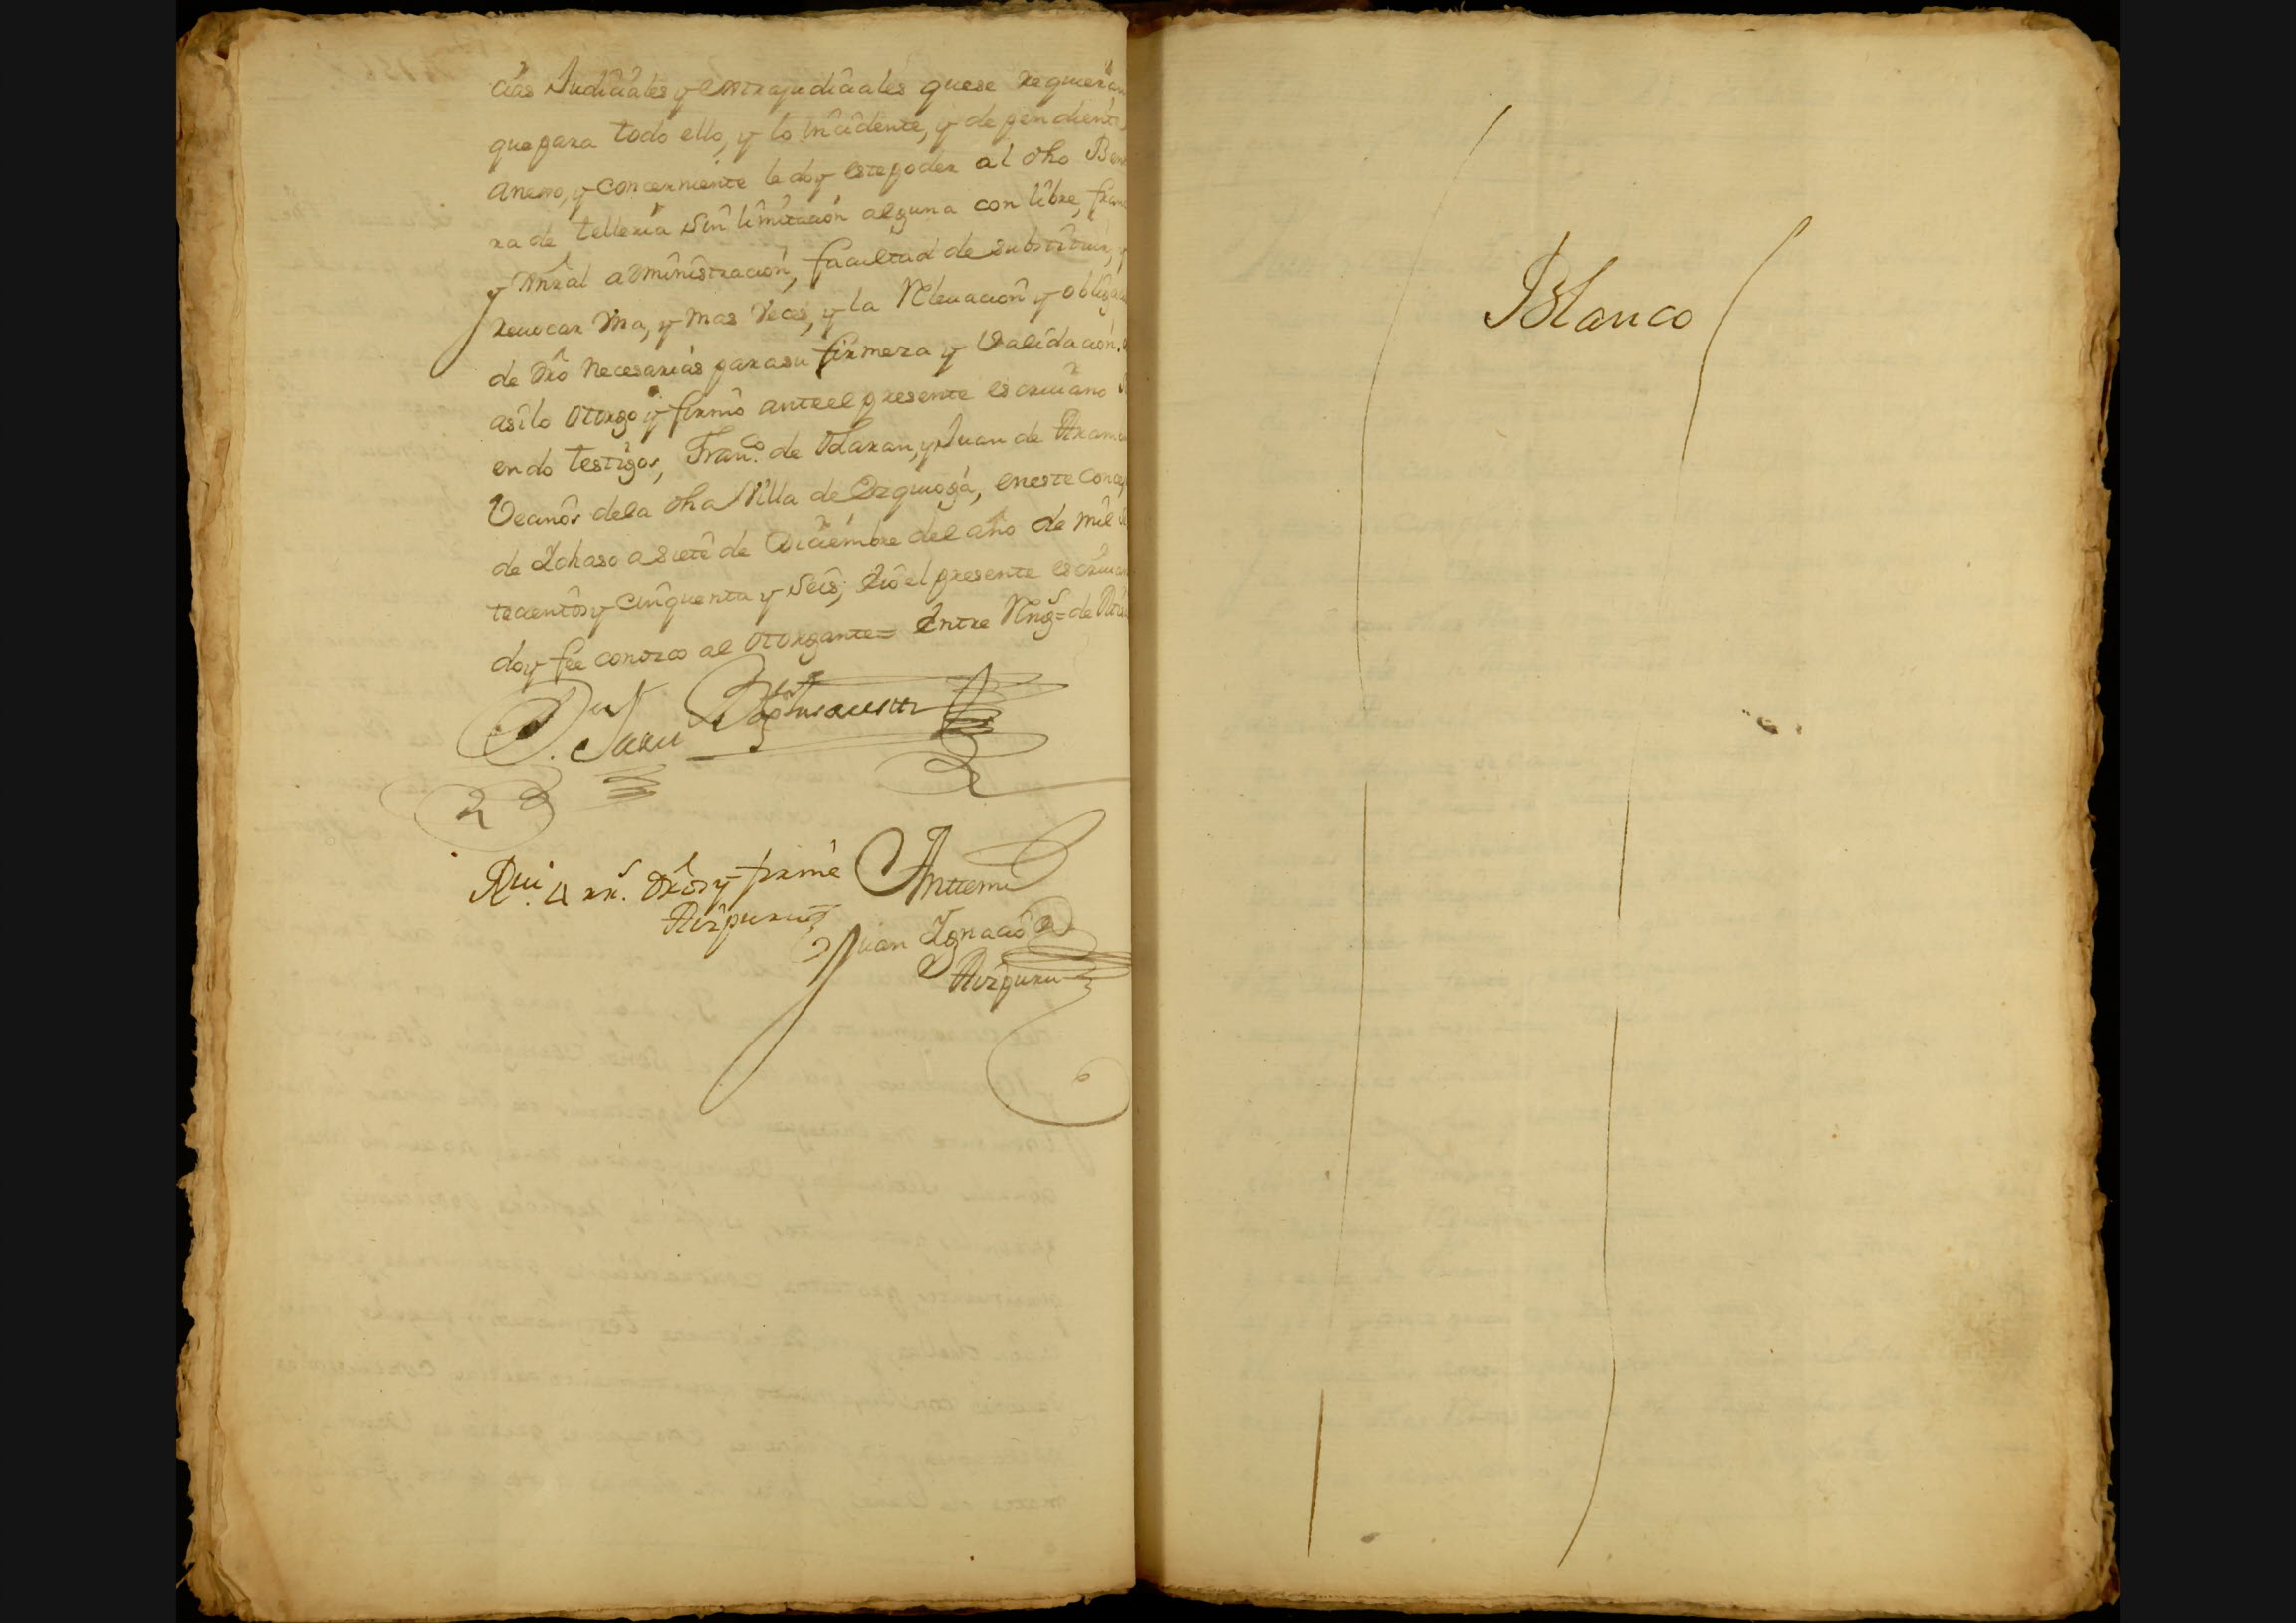 cias Judiciales y extrajudiciales quese requieran
que para todo ello, y lo incidente, y dependiente,
anexo, y concerniente le doy este poder al dho Ben
ra de Telleria sin limitacion alguna con libre, fran
y Gnral administracion, facultad de substituir, y
revocar vna, y mas veces, y la Relevacion y obliga
de dro necesarias para su firmeza y validacion.
asilo otorgo y firmo ante el presente escrivano
endo testigos, Franco. de Olaran, y Juan de Aram
Vecinos dela dha Villa de Ezquioga, en este Concej
de Ichaso a siete de Diciembre del año de mil
tecientos y cinquenta y seis; Yo el presente escrivan
doy fee conozco al otorgante = Entre Rngs = de
Dn. Juan Bapta
Rui. 4 rrs. dros y firmé
Aizpuru
Anttemi
Juan Ignacio de
Aizpuru
Blanco